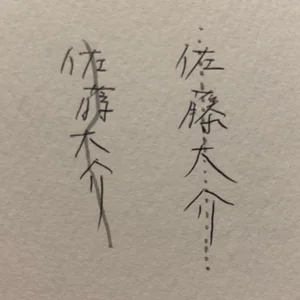 佐藤太介
佐藤太介